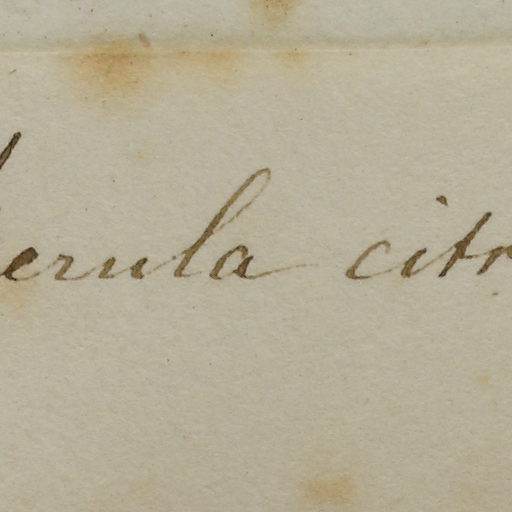 erula citr